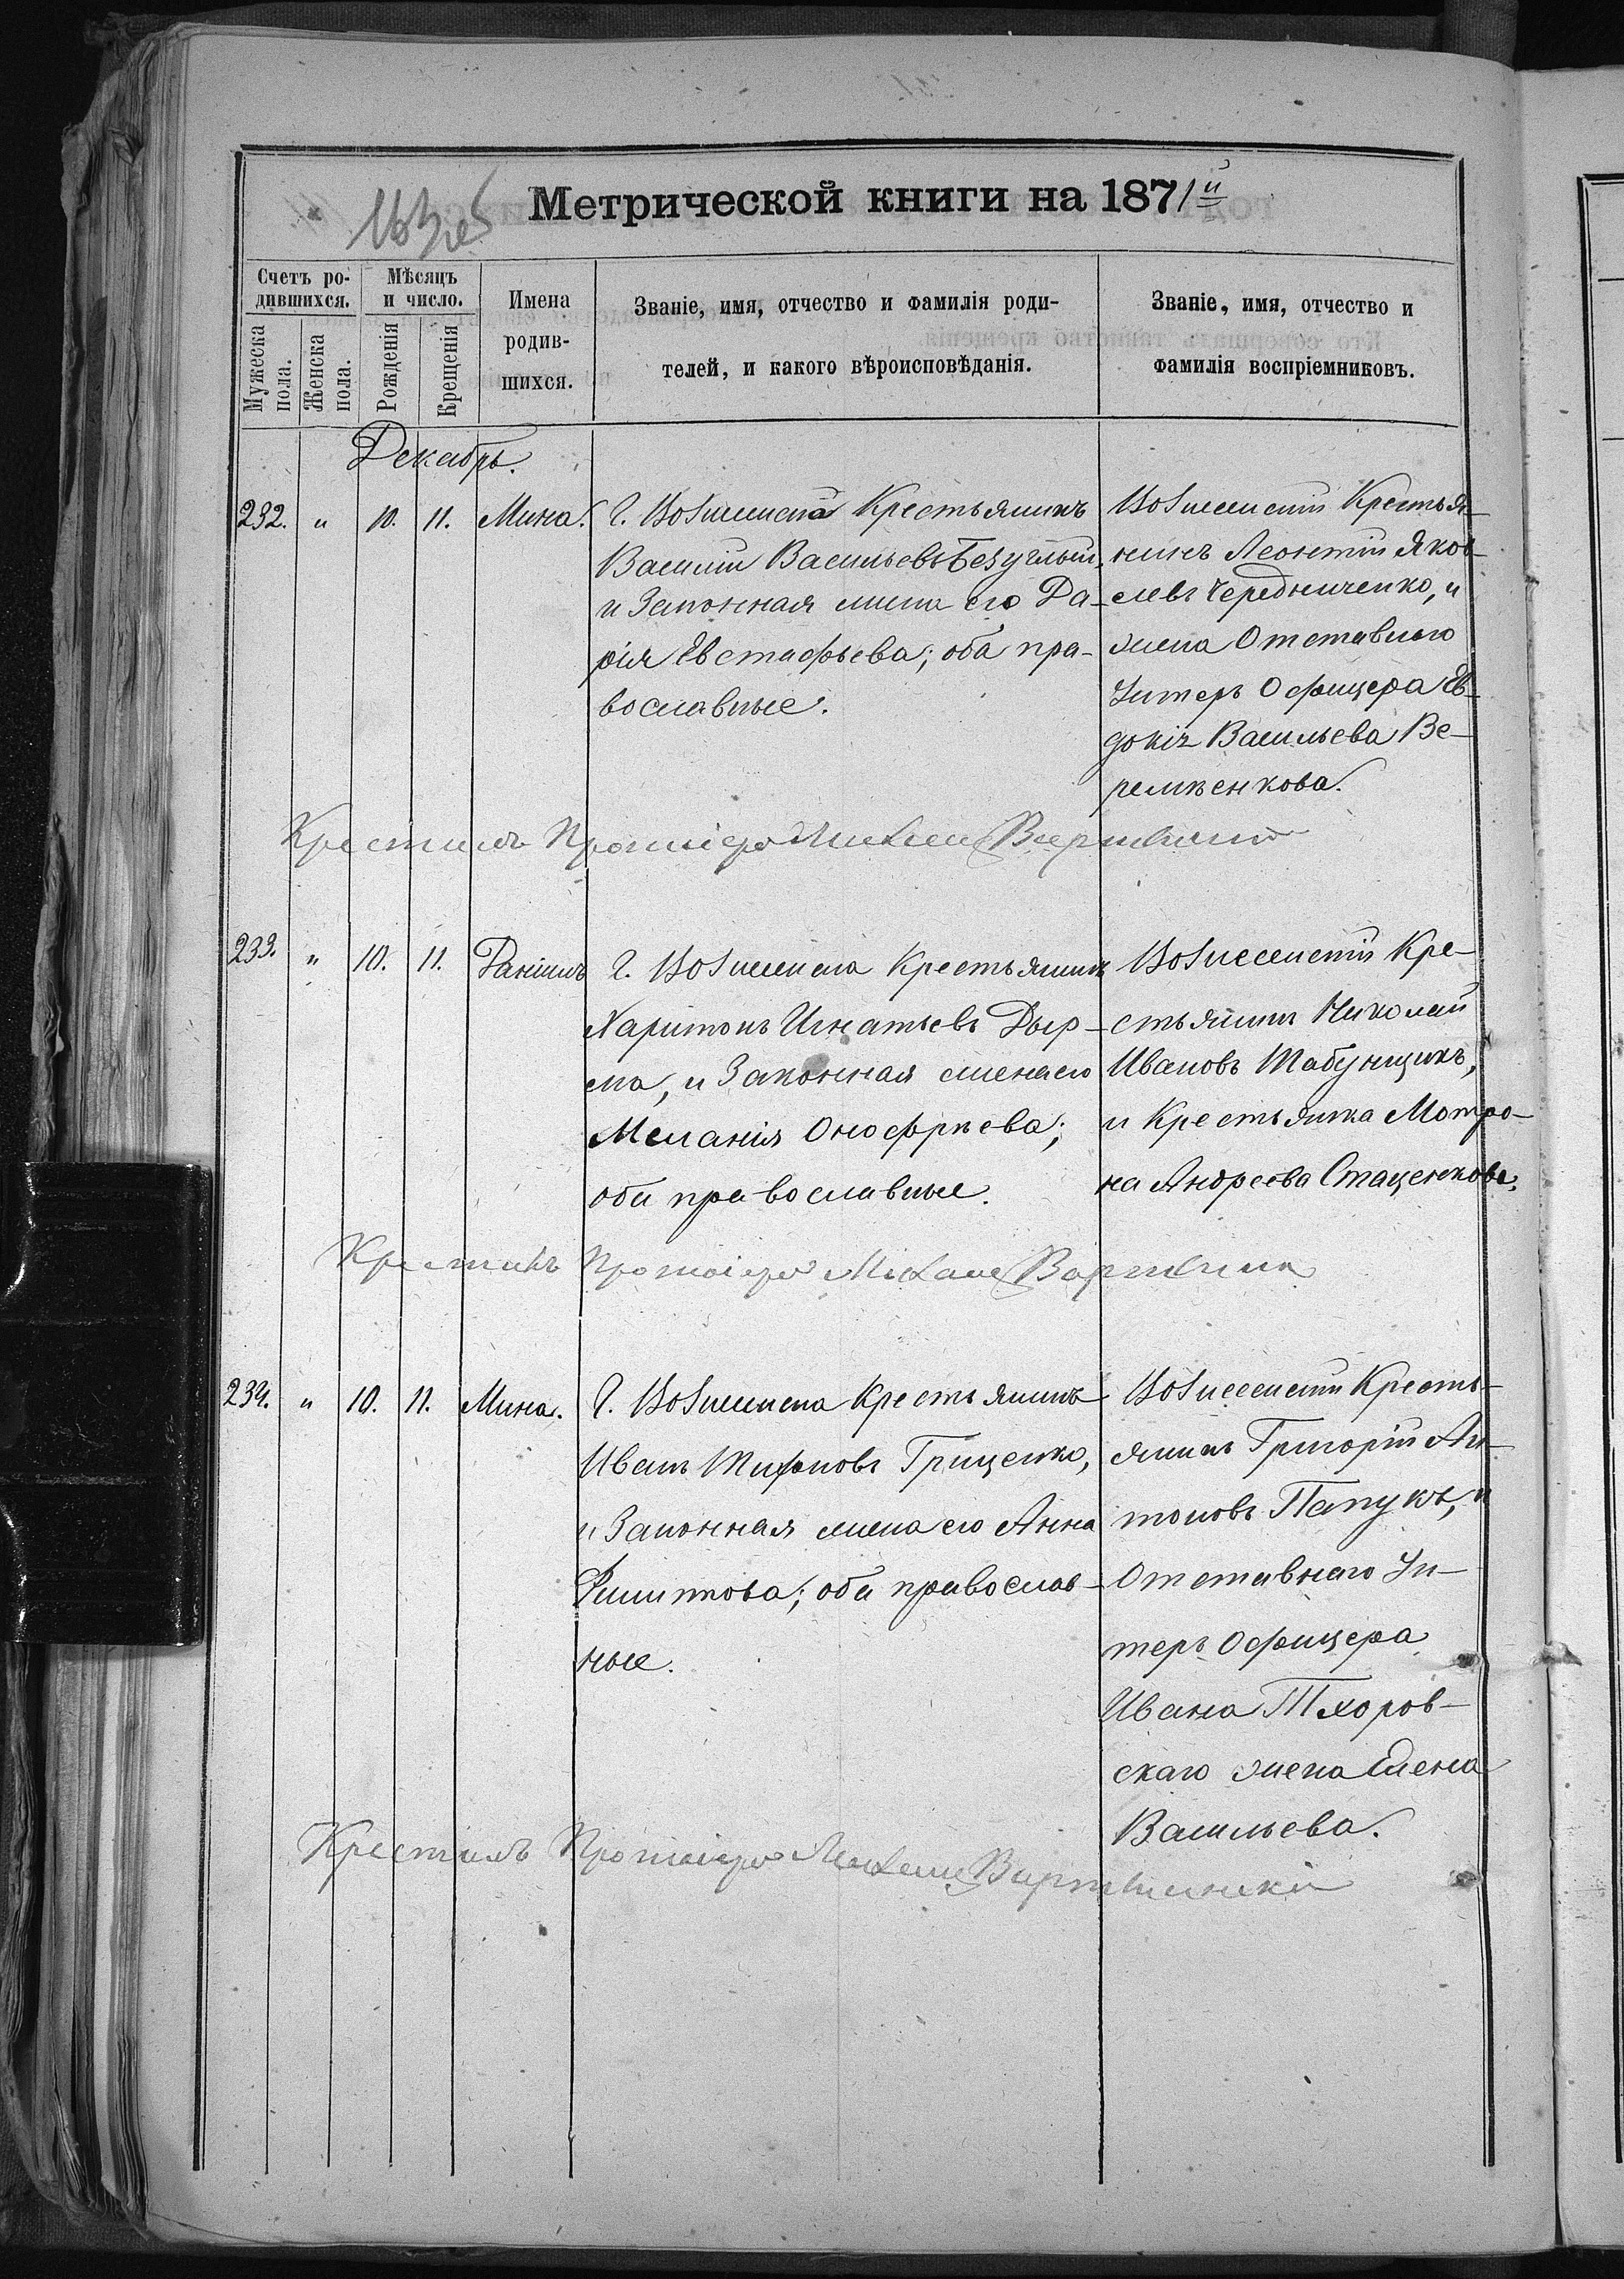 Метрической книги на 1871й
Счетъ ро-
дившихся.
Мужеска
пола.
Женска
пола.
Мѣсяцъ
и число.
Рожденія
Крещенія
Имена
родив-
шихся.
Званіе, имя, отчество и фамилія роди-
телей, и какого вѣроисповѣданія.
Званіе, имя, отчество и
фамилія воспріемниковъ.
Декабрь.
232. " 10. 11. Мина.
Г. Вознесенска Крестьянинъ
Василій Васильевъ Безуглый,
и Законная жена его Да-
рія Евстафьева; оба пра-
вославные.
Вознесенскій Крестья-
нинъ Леонтій Яков-
левъ Чередниченко, и
жена Отставного
Унтеръ Офицера Ев-
докія Васильева Ве-
ремѣенкова.
Крестилъ Протоіерей Михаил
233. " 10. 11. Даніилъ
Г. Вознесенска Крестьянинъ
Харитонъ Игнатьевъ Дыр-
да, и Законная жена его
Меланія Онофріева;
оба православные.
Вознесенскій Кре-
стьянинъ Николай
Ивановъ Табунщикъ,
и Крестьянка Мотро-
на Андреева Стаценкова.
Крестилъ Протоіерей Михаил
234. " 10. 11. Мина.
Г. Вознесенска Крестьянинъ
Иванъ Грищенко,
и Законная жена его Анна
Филиппова; оба православ-
ные.
Вознесенскій Кресть-
янинъ Григорій Ан-
тоновъ Папукъ, и
Отставнаго Ун-
теръ Офицера
Ивана Тхоров-
скаго жена Елена
Васильева.
Крестилъ Протоіерей Михаил